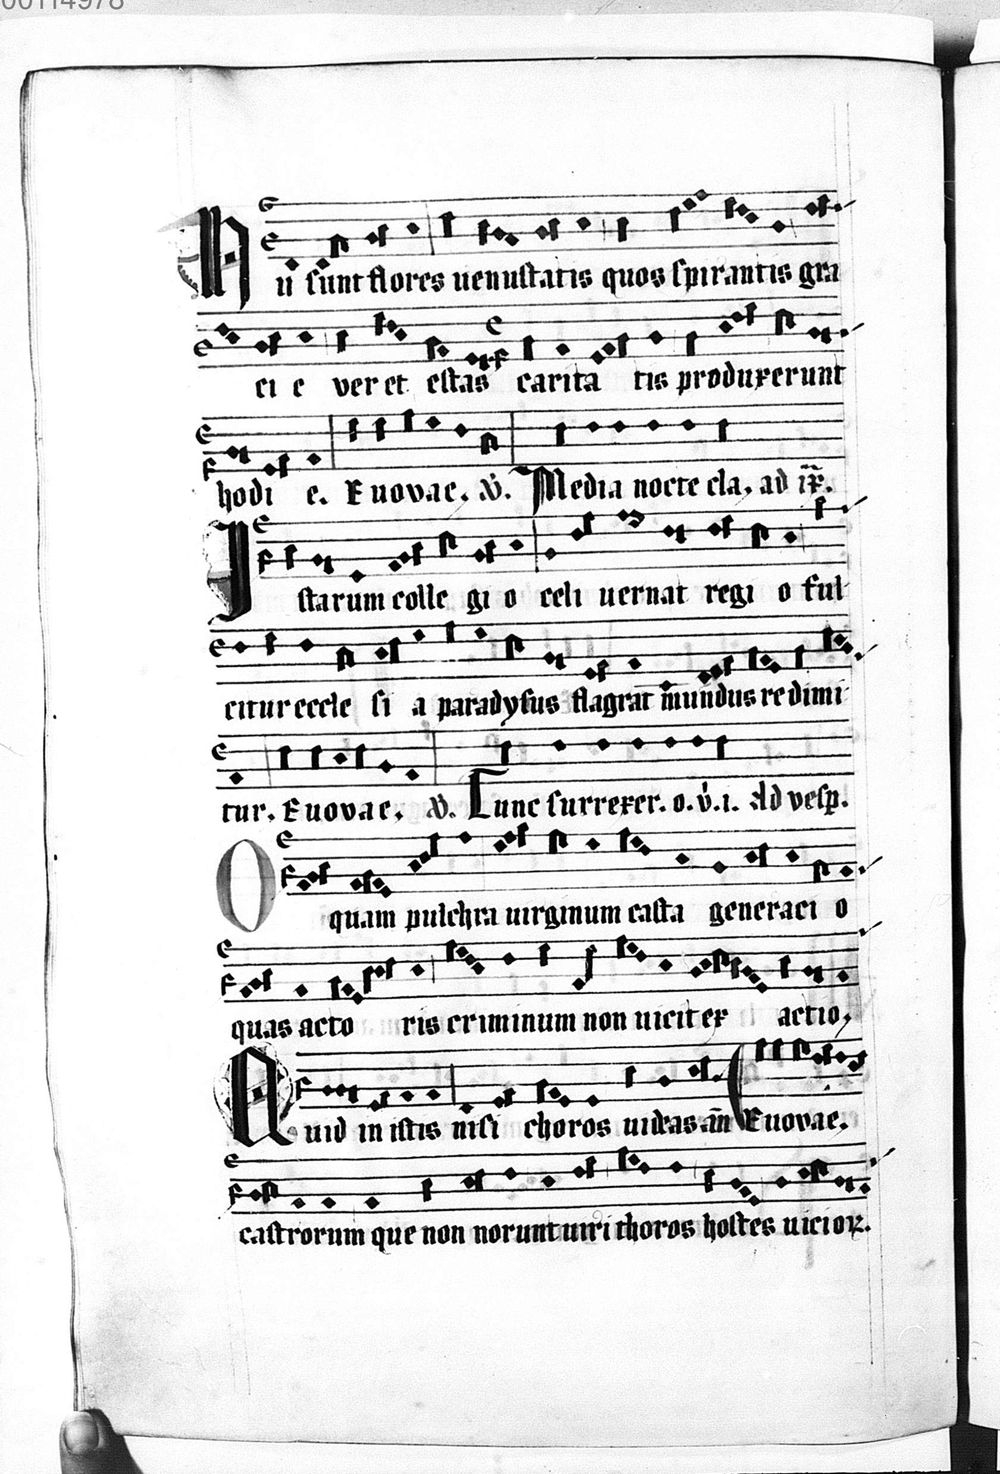 00114978
Hii sunt flores uenustatis quos spirantis gra
ci e ver et estas carita tis produxerunt
hodi e. Euovae. V̇. Media nocte cla. ad
Istarum colle gi o celi uernat regi o ful
citur eccle si a paradysus flagrat mundus redimi
tur. Euovae. V̇. Tunc surrexer. o. v̇. i. Ad vesp.
O quam pulchra uirginum casta generaci o
quas acto ris criminum non uicit ex actio,
Quid in istis nisi choros uideas añ Euovae.
castrorum que non norunt uiri thoros hostes uicioꝝ.